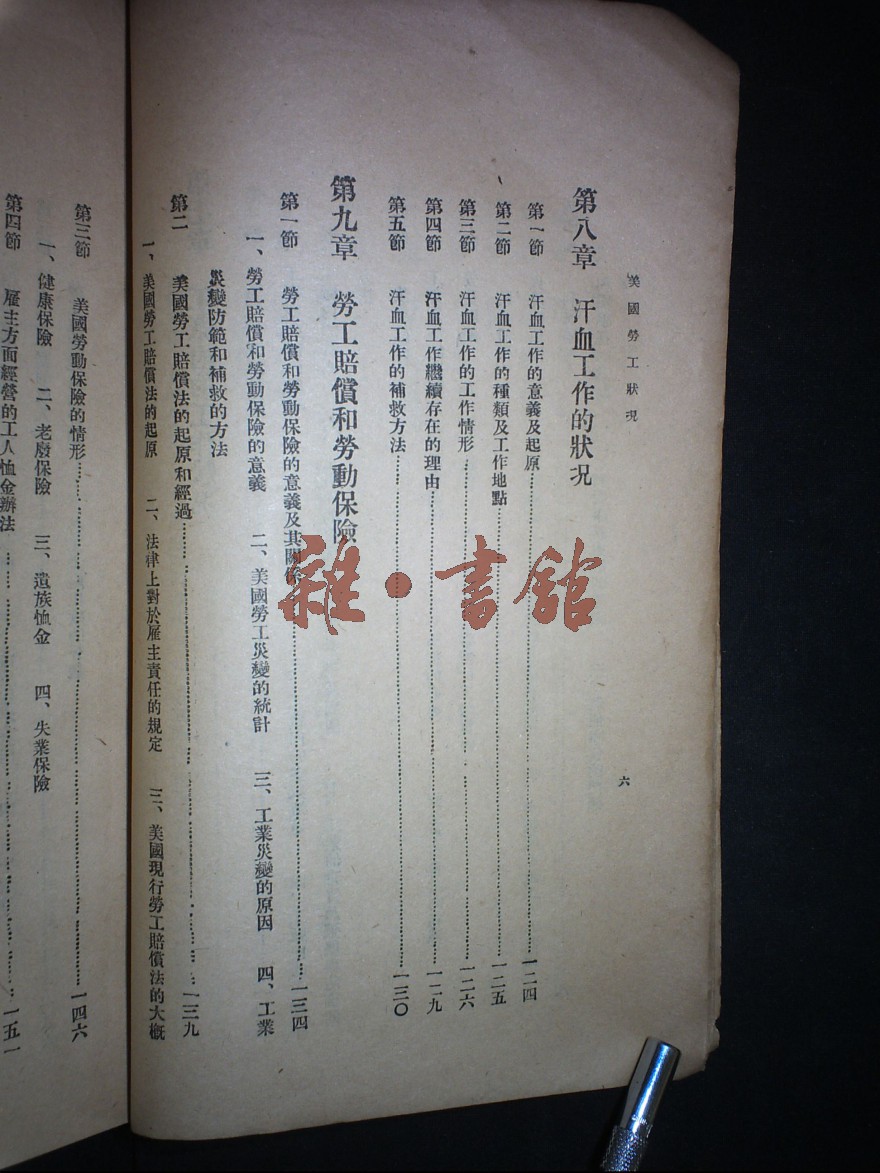 美國勞工狀況
六
第八章 汗血工作的狀況
第一節 汗血工作的意義及起原……一二四
第二節 汗血工作的種類及工作地點……一二五
第三節 汗血工作的工作情形……一二六
第四節 汗血工作繼續存在的理由……一二九
第五節 汗血工作的補救方法……一三〇
第九章 勞工賠償和勞動保險
第一節 勞工賠償和勞動保險的意義及其關係……一三四
一、勞工賠償和勞動保險的意義 二、美國勞工災變的統計 三、工業災變的原因 四、工業
災變防範和補救的方法
第二 美國勞工賠償法的起原和經過……一三九
一、美國勞工賠償法的起原 二、法律上對於雇主責任的規定 三、美國現行勞工賠償法的大概
第三節 美國勞動保險的情形……一四六
一、健康保險 二、老廢保險 三、遺族恤金 四、失業保險
第四節 雇主方面經營的工人恤金辦法……一五一
雜·書館